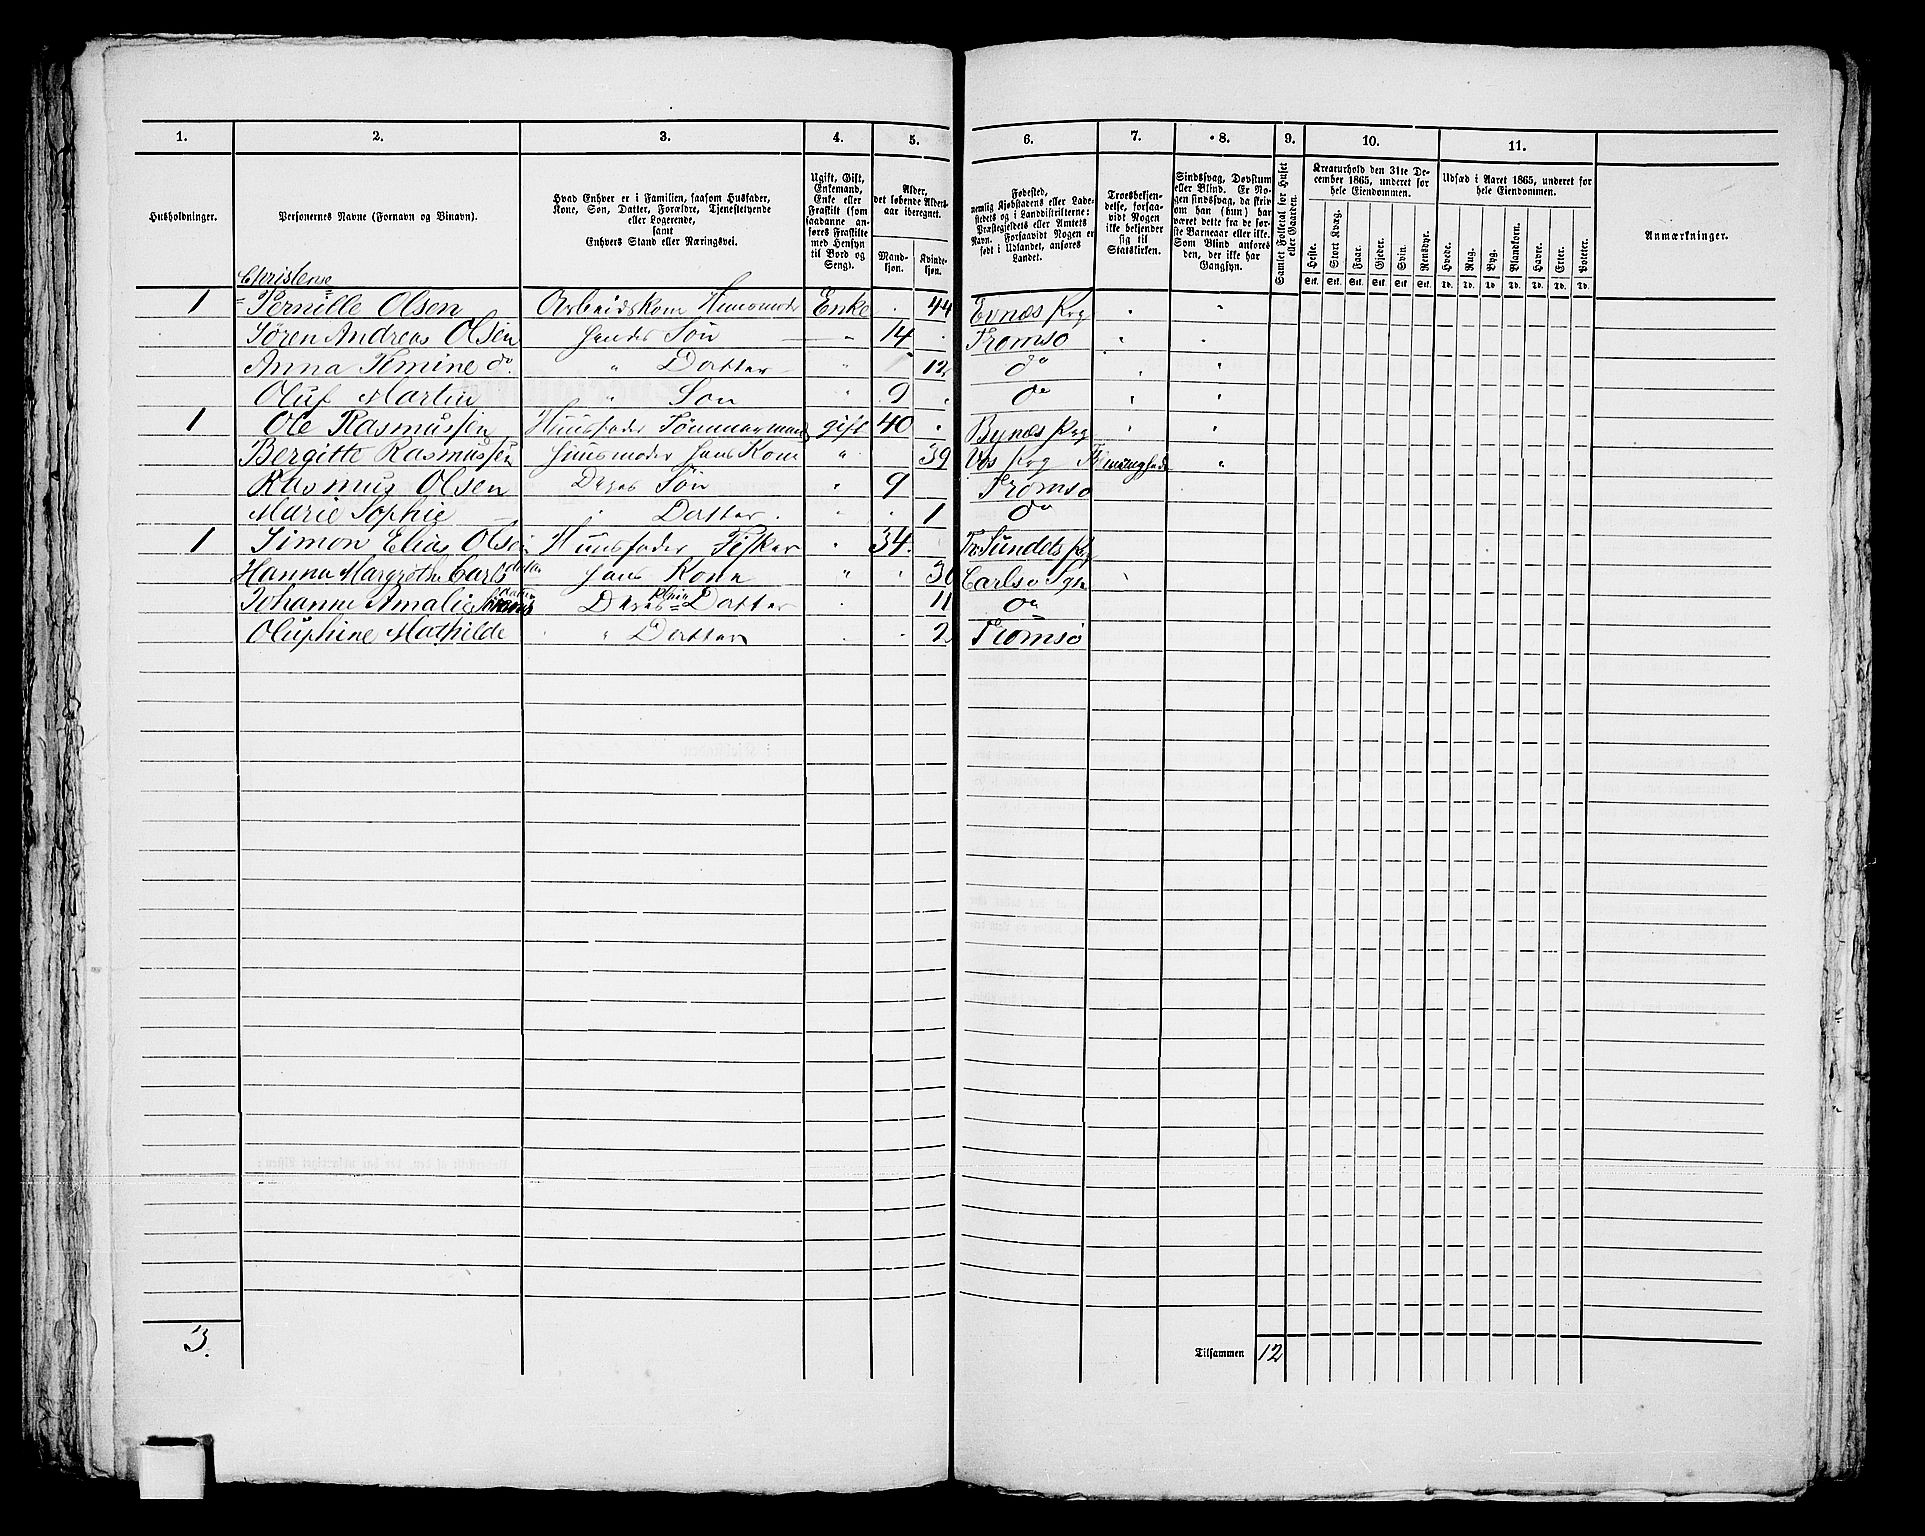 1. 2. 3. 4. 5. 6. 7. 8. 9. 10. 11.
Husholdninger. Personernes Navne (Fornavn og Binavn). Hvad Enhver er i Familien, saasom Husfader, Kone, Søn, Datter, Forældre, Tjenestetyende eller Logerende, samt Enhvers Stand eller Næringsvei. Ugift, Gift, Enkemand, Enke eller Fraskilt (som saadanne anføres Fraskilte med Hensyn til Bord og Seng). Alder, det løbende Aldersaar iberegnet. Mandkjøn. Kvindekjøn. Fødested, nemlig Kjøbstadens eller Ladestedets og i Landdistrikterne: Præstegjeldets eller Amtets Navn. Forsaavidt Nogen er født i Udlandet, anføres Landet. Troesbekjendelse, forsaavidt Nogen ikke bekjender sig til Statskirken. Sindssvag, Døvstum eller Blind. Er Nogen sindssvag, da skrives om han (hun) har været dette fra de første Barneaar eller ikke. Som Blind anføres den, der ikke har Gangsyn. Samlet Folketal for Huset eller Gaarden. Kreaturhold den 31te December 1865, underet for hele Eiendommen. Udsæd i Aaret 1865, underet for hele Eiendommen. Anmærkninger.
Heste. Stort Kvæg. Faar. Gjeder. Svin. Rensdyr. Hvede. Rug. Byg. Blandkorn. Havre. Erter. Poteter.
Stk. Stk. Stk. Stk. Stk. Stk. Td. Td. Td. Td. Td. Td. Td.
Christense
1 Pernille Olsen Arbeidskone Huusmoder Enke 44 Evnæs Prg
Søren Andreas Olsen Hendes Søn " 14 Tromsø
Anna Temine do. " Datter " 12 do
Oluf Martin " Søn " 9 do
1 Ole Rasmussen Huusfader Tømmermand gift 40 Bynæs Prg
Bergitte Rasmussen Huusmoder Hans Kone " 39 Vos Prg
Rasmus Olsen Deres Søn " 9 Tromsø
Marie Sophie " Datter " 1 do
1 Simon Elias Olsen Huusfader Fisker " 34 Tr. Sundets Prg
Hanna Margrethe Carls datter Hans Kone " 30 Carlsø Sgn
Johanne Amalie Deres Pleie Datter 11 do
Oluphine Mathilde " Datter 2 Tromsø
3. Tilsammen 12